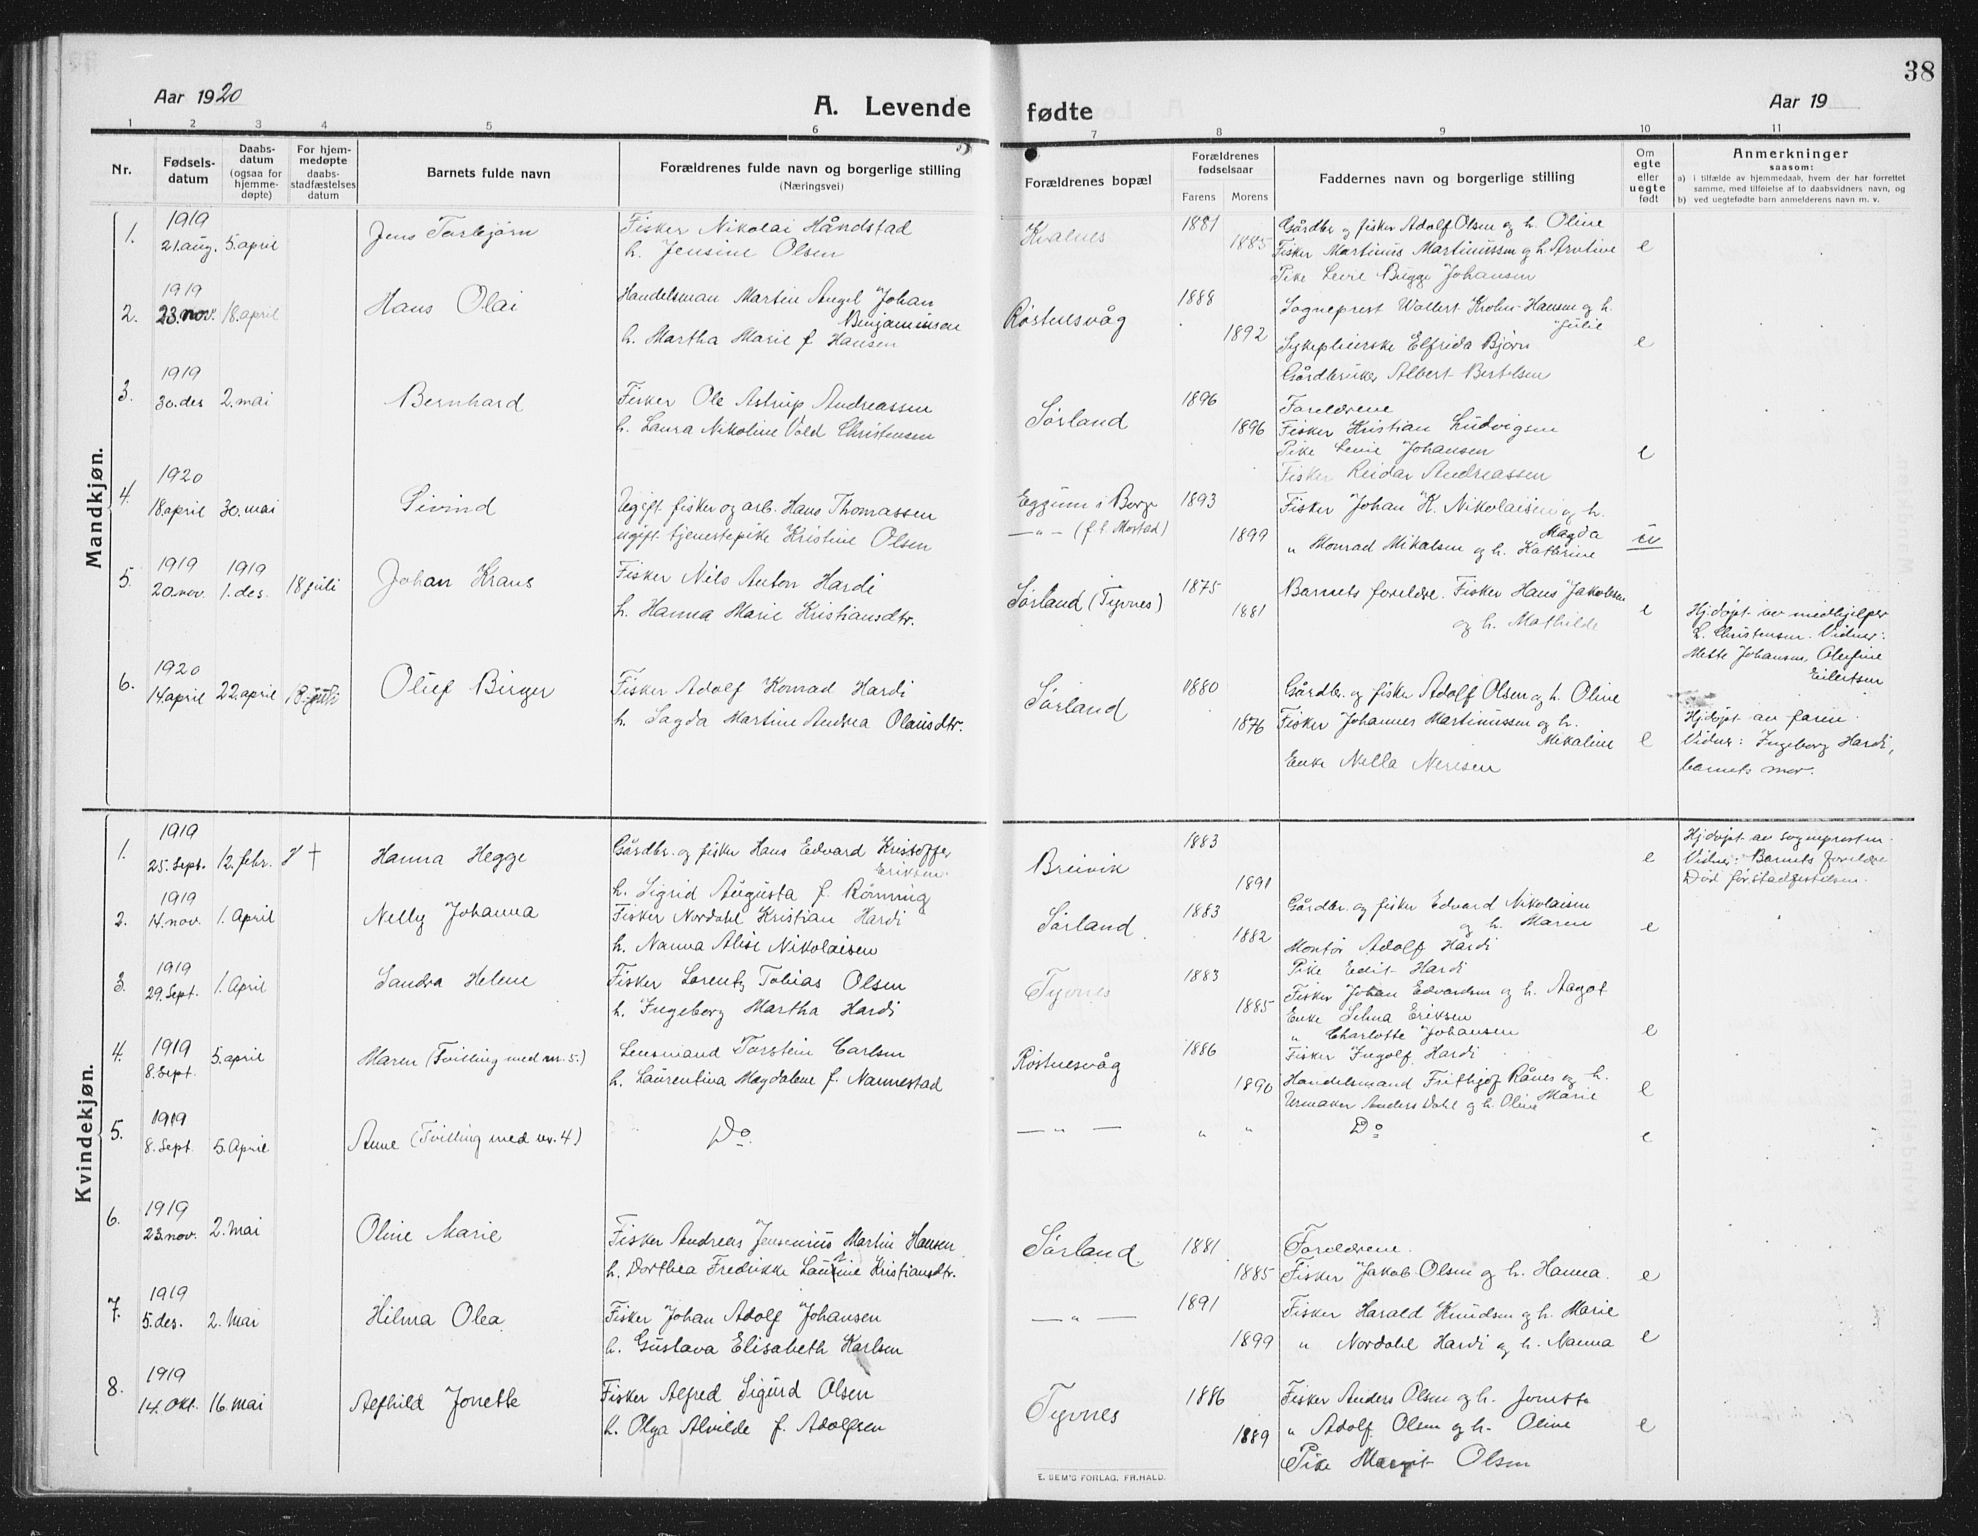 38
Aar 1920
A. Levende fødte
Aar 19
1 2 3 4 5 6 7 8 9 10 11
Nr.
Fødsels-
datum
Daabs-
datum
(ogsaa for
hjemme-
døpte)
For hjem-
medøpte
daabs-
stadfæstelses
datum
Barnets fulde navn
Forældrenes fulde navn og borgerlige stilling
(Næringsvei)
Forældrenes bopæl
Forældrenes
fødselsaar
Farens Morens
Faddernes navn og borgerlige stilling
Om
egte
eller
uegte
født
Anmerkninger
saasom:
a) i tilfælde av hjemmedaab, hvem der har forrettet
samme, med tilføielse af to daabsvidners navn, og
b) ved uegtefødte barn anmelderens navn m. v.
Mandkjøn.
1. 1919
21. aug. 5. april Jens Torbjørn
Fisker Nikolai Håndstad
h. Jensine Olsen
Kvalnes 1881
1885
Gårdbr og fisker Adolf Olsen og h. Oline
Fisker Martinus Martinussen og h.
Pike Levie Bugge Johansen
e
2. 1919
23. nov. 18. april Hans Olai
Handelsman Martin Angel Johan
Benjaminsen
h. Martha Marie f Hansen
Røstnesvåg 1888
1892
Sogneprest Wollert Krohn-Hansen og h.
Julie
Sykepleierske Elfrida Bjørn
Gårdbruker Albert Bertelsen
e
3. 1919
30. des 2. mai Bernhard
Fisker Ole Astrup Andreassen
h. Laura Nikoline Vold Christensen
Sørland 1896
1896
Foreldrene
Fisker Kristian Ludvigsen
Pike Levie Johansen
Fisker Reidar Andreassen
e
4. 1920
18. april 30. mai Eivind
Ugift fisker og arb. Hans Thomassen
ugift tjenestepike Kristine Olsen
Eggum i Borge
— " — (f. t. Mostad)
1893
1899
Fisker Johan K. Nikolaisen og h.
Magda
" Monrad Mikalsen og h. Kathrine
5. 1919 1919
20. nov. 1. des. 18 juli Johan Kraus
Fisker Nils Anton Hardi
h. Hanna Marie Kristiansdtr.
Sørland (Tyvnes) 1875
1881
Barnets foreldre. Fisker Hans Jakobsen
og h. Mathilde
e
Hj.døpt av medhjelper
L. Christensen. Vidner:
Mette Johansen, Olufine
Eilertsen
6. 1920
14. april 22. april 18. juli Oluf Birger
Fisker Adolf Konrad Hardi
h. Sagda Martine Andrea Olausdtr.
Sørland 1880
1876
Gårdbr. og fisker Adolf Olsen og h. Oline
Fisker Johannes Martinussen og h.
Mikaline
Enke Nella Neresen
e
Hj.døpt av faren.
Vidner: Ingeborg Hardi,
barnets mor.
Kvindekjøn.
1. 1919
25. Sept. 12. febr. H † Hanna Hegge
Gårdbr. og fisker Hans Edvard Kristoffer
Eriksen.
h. Sigrid Augusta f. Rønning
Breivik 1883
1891
e
Hj.døpt av sognepresten.
Vidner: Barnets foreldre
Død før stadfestelsen.
2. 1919
14. nov. 1. April Nelly Johanna
Fisker Nordahl Kristian Hardi
h. Nanna Alise Nikolaisen
Sørland 1883
1882
Gårdbr. og fisker Edvard Nikolaisen
og h. Maren
Montør Adolf Hardi
Pike Edit Hardi
e
3. 1919
29. Sept. 1. April Sandra Helene
Fisker Lorentz Tobias Olsen
h. Ingeborg Martha Hardi
Tyvnes 1883
1885
Fisker Johan Edvardsen og h. Aagot
Enke Selma Eriksen
" Charlotte Johansen
Fisker Ingolf Hardi
e
4. 1919
8. Sept. 5. april Maren (Tvilling med nr. 5.)
Lensmand Torstein Carlsen
h. Laurentina Magdalene f. Nannestad
Røstnesvåg 1886
1890
Handelsmand Frithjof Rånes og h.
Marie
Urmaker Anders Dahl og h. Oline
e
5. 1919
8. Sept 5. April Anne (Tvilling med nr. 4)
Do
— " — " " Do
e
6. 1919
23. nov. 2. Mai Oline Marie
Fisker Andreas Jensenius Martin Hansen
h. Dorthea Fredrikke Laurine Kristiansdtr.
Sørland 1881
1885
Foreldrene.
Fisker Jakob Olsen og h. Hanna.
e
7. 1919
5. des. 2. Mai Hilma Olea
Fisker Johan Adolf Johansen
h. Gustava Elisabeth Karlsen
— " — 1891
1899
Fisker Harald Knudsen og h. Marie
" Nordahl Hardi og h. Nanna
e
8. 1919
14. Okt. 16. mai Alfhild Jonette
Fisker Alfred Sigurd Olsen
h. Olga Alvilde f. Adolfsen
Tyvnes 1886
1889
Fisker Anders Olsen og h. Jonette
" Adolf Olsen og h. Oline
Pike Margit Olsen
e
E. SEM'S FORLAG. FR.HALD.